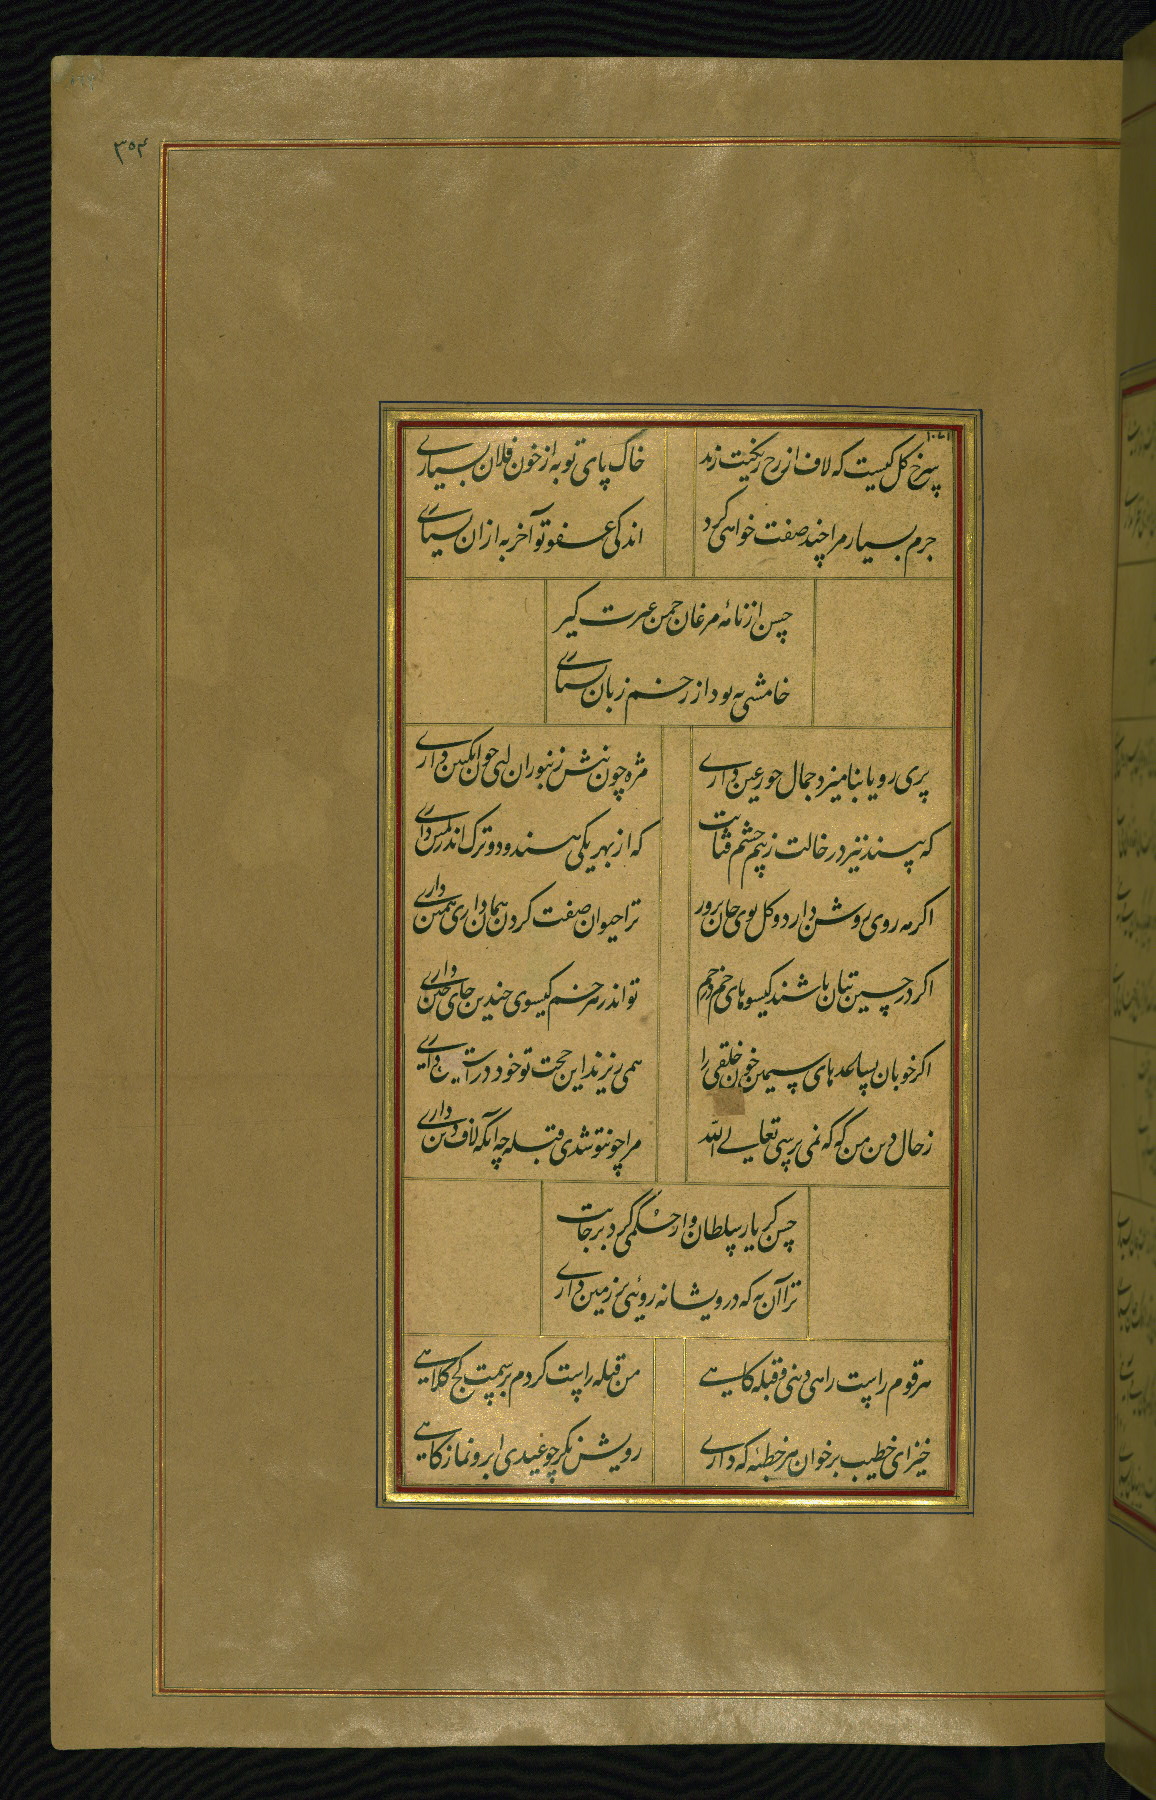 ۳۵۴
سرخ گل کیست که لاف از رخ رنگینت زند
خاک پای تو به از خون فلان بسیاری
جرم بسیار مرا چند صفت خواهی کرد
اندکی عفو تو آخر به ازان بسیاری
حسن از نامه مرغان چمن عبرت گیر
خامشی به بود از زخم زبان بسیاری
پری رویا بنامیزد جمال حور عین داری
مژه چون نیش زنبوران لبی چون انگبین داری
که پسندیز در خالت ز بیم چشم فتانت
که از بهر یکی هندو دو ترک اندر کمین داری
اکر مه روی روشن دارد و کل بوی جان پرور
ترا حیوان صفت کردن همان داری همین داری
اکر در چین بتان باشند کیسوهای خم در خم
تو اندر هر خم کیسوی چندین جای چین داری
اکر خوبان بساعدهای سیمین خون خلقی را
همی ریزند این حجت تو خود در آستین داری
ز حال دین من که که نمی پرسی تعالی الله
مرا چون تو شدی قبله چه آنکه لاف دین داری
حسن کر یار سلطان وار خشمی کرد بر جایت
ترا آن به که درویشانه روئی بر زمین داری
هر قوم راست راهی دینی و قبله کاهی
من قبله راست کردم بر سمت کج کلاهی
خیز ای خطیب برخوان هر خطبه که داری
رویش نگر چو عیدی ابرو نمازکاهی